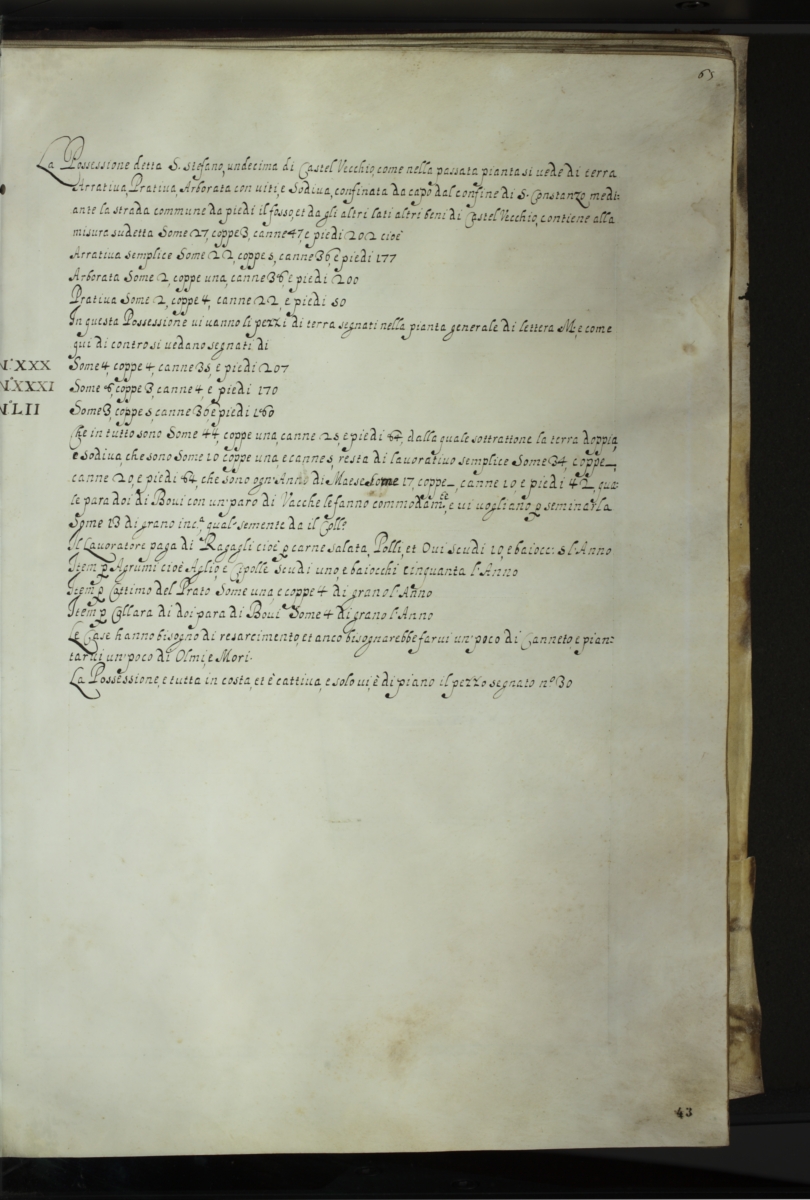 65
La Possessione detta S. Stefano, undecima di Castel Vecchio, come nella passata pianta si uede di terra
Arratiua, Pratiua Arborata con uiti, e Sodiua, confinata da capo dal confine di S. Constanzo medi:
ante la strada commune da piedi il fosso, et da gli altri lati altri beni di Castel Vecchio, contiene alla
misura sudetta Some 27, coppe 3, canne 47, e piedi 202 cioè
Arratiua semplice Some 22, coppe 5, canne 36, e piedi 177
Arborata Some 2, coppe una, canne 36, e piedi 200
Pratiua Some 2, coppe 4, canne 22, e piedi 50
In questa Possessione ui uanno li pezzi di terra segnati nella pianta generale di lettera M, e come
qui di contro si uedano segnati di
N.º XXX Some 4, coppe 4, canne 35, e piedi 207
N.º XXXI Some 6, coppe 3, canne 4, e piedi 170
N.º LII Some 3, coppe 5, canne 30, e piedi 160
Che in tutto sono Some 44, coppe una, canne 25, e piedi 64, dalla quale sottrattone la terra doppia,
e sodiua, che sono Some 10 coppe una, e canne 5, resta di lauoratiuo semplice Some 34, coppe _,
canne 20, e piedi 64, che sono ogn'Anno di Maese Some 17, coppe _, canne 10, e piedi 42, qua:
le para doi di Boui con un paro di Vacche le fanno commodam.te, e ui uogliano p seminarla
Some 13 di grano inc.ª, qual semente da il Coll.º
Il Lauoratore paga di Ragagli cioè p carne salata, Polli, et Oui scudi 10, e baiocc: 5 l'Anno
Item p Agrumi cioè Aglio, e Cipolle scudi uno, e baiocchi cinquanta l'Anno
Item p Cottimo del Prato Some una, e coppe 4 di grano l'Anno
Item p Collara di doi para di Boui Some 4 di grano l'Anno
Le Case hanno bisogno di resarcimento, et anco bisognarebbe farui un poco di Canneto, e pian:
tarui un poco di Olmi, e Mori.
La Possessione, e tutta in costa, et è cattiua, e solo ui, è di piano il pezzo segnato n.º 30
43